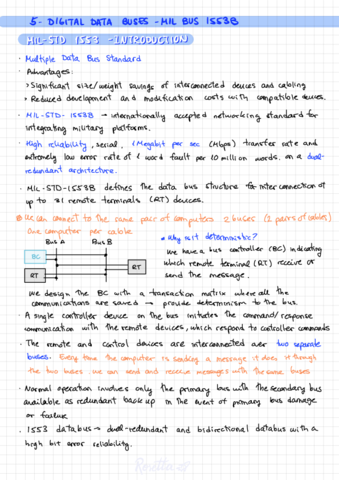 5- DIGITAL DATA BUSES - MIL BUS 1553B
MIL-STD 1553 - INTRODUCTION
· Multiple Data Bus Standard
· Advantages:
> Significant size/weight savings of interconnected devices and cabling
> Reduced development and modification costs with compatible devices.
· MIL-STD-1553B → internationally accepted networking standard for
integrating military platforms.
· High reliability, serial, 1 Megabit per sec (Mbps) transfer rate and
extremely low error rate of 1 word fault per 10 million words, on a dual-
redundant architecture.
· MIL-STD-1553B defines the data bus structure for interconnection of
up to 31 remote terminals (RT) devices.
We can connect to the same pair of computers 2 buses (2 pairs of cables)
One computer per cable
Bus A
Bus B
BC
RT
RT
• Why is it deterministic?
We have a bus controller (BC) indicating
which remote terminal (RT) receive or
send the message.
We design the BC with a transaction matrix where all the
communications are saved → provide determinism to the bus.
· A single controller device on the bus initiates the command/response
communication with the remote devices, which respond to controller commands
· The remote and control devices are interconnected over two separate
buses. Every time the computer is sending a message it does it through
the two buses. We can send and receive messages with the same buses
· Normal operation involves only the primary bus with the secondary bus
available as redundant back up in the event of primary bus damage
or failure
· 1553 databus → dual-redundant and bidirectional databus with a
high bit error reliability.